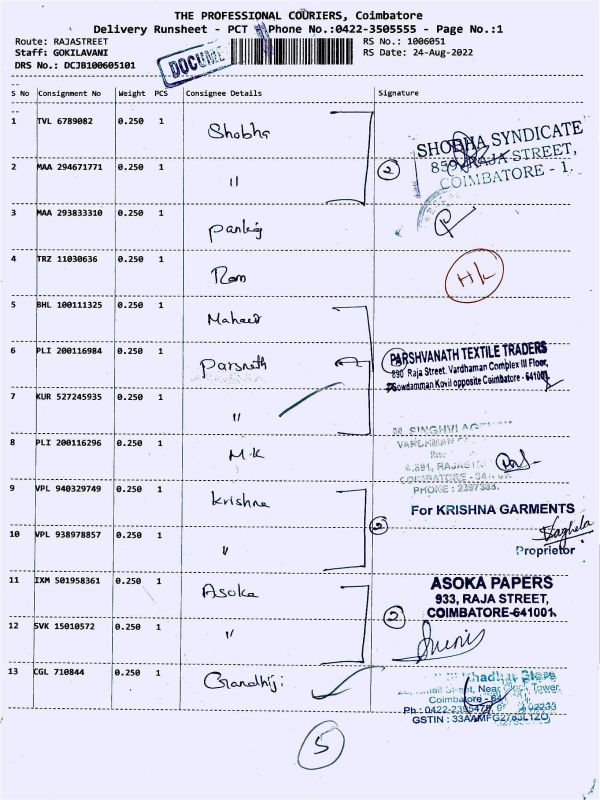 THE PROFESSIONAL COURIERS, Coimbatore
Delivery Runsheet - PCT Phone No.:0422-3505555 - Page No.:1
Route: RAJASTREET RS No.: 1006051
Staff: GOKILAVANI RS Date: 24-Aug-2022
DRS No.: DCJB100605101
DOCUME
S No Consignment No Weight PCS Consignee Details Signature
1 TVL 6789082 0.250 1 Shobha
SHOBHA SYNDICATE
859, RAJA STREET,
COIMBATORE - 1.
2 MAA 294671771 0.250 1 " 2
3 MAA 293833310 0.250 1 Pankaj
4 TRZ 11030636 0.250 1 Ram H/L
5 BHL 100111325 0.250 1
6 PLI 200116984 0.250 1 Parsnath
PARSHVANATH TEXTILE TRADERS
890 Raja Street, Vardhaman Complex III Floor,
Gowdamman Kovil opposite Coimbatore - 641001.
7 KUR 527245935 0.250 1 "
8 PLI 200116296 0.250 1 M.K
M. SINGHVI
COIMBATORE
PHONE :
9 VPL 940329749 0.250 1 Krishna
For KRISHNA GARMENTS
2
Vaghela
Proprietor
10 VPL 938978857 0.250 1 "
11 IXM 501958361 0.250 1 Asoka
ASOKA PAPERS
933, RAJA STREET,
COIMBATORE-641001.
2
12 SVK 15010572 0.250 1 "
13 CGL 710844 0.250 1 Gandhiji
Store
Street, Near Clock Tower,
Coimbatore - 64
Ph : 0422-2395475
GSTIN : 33AAMFG2783L1ZO
5